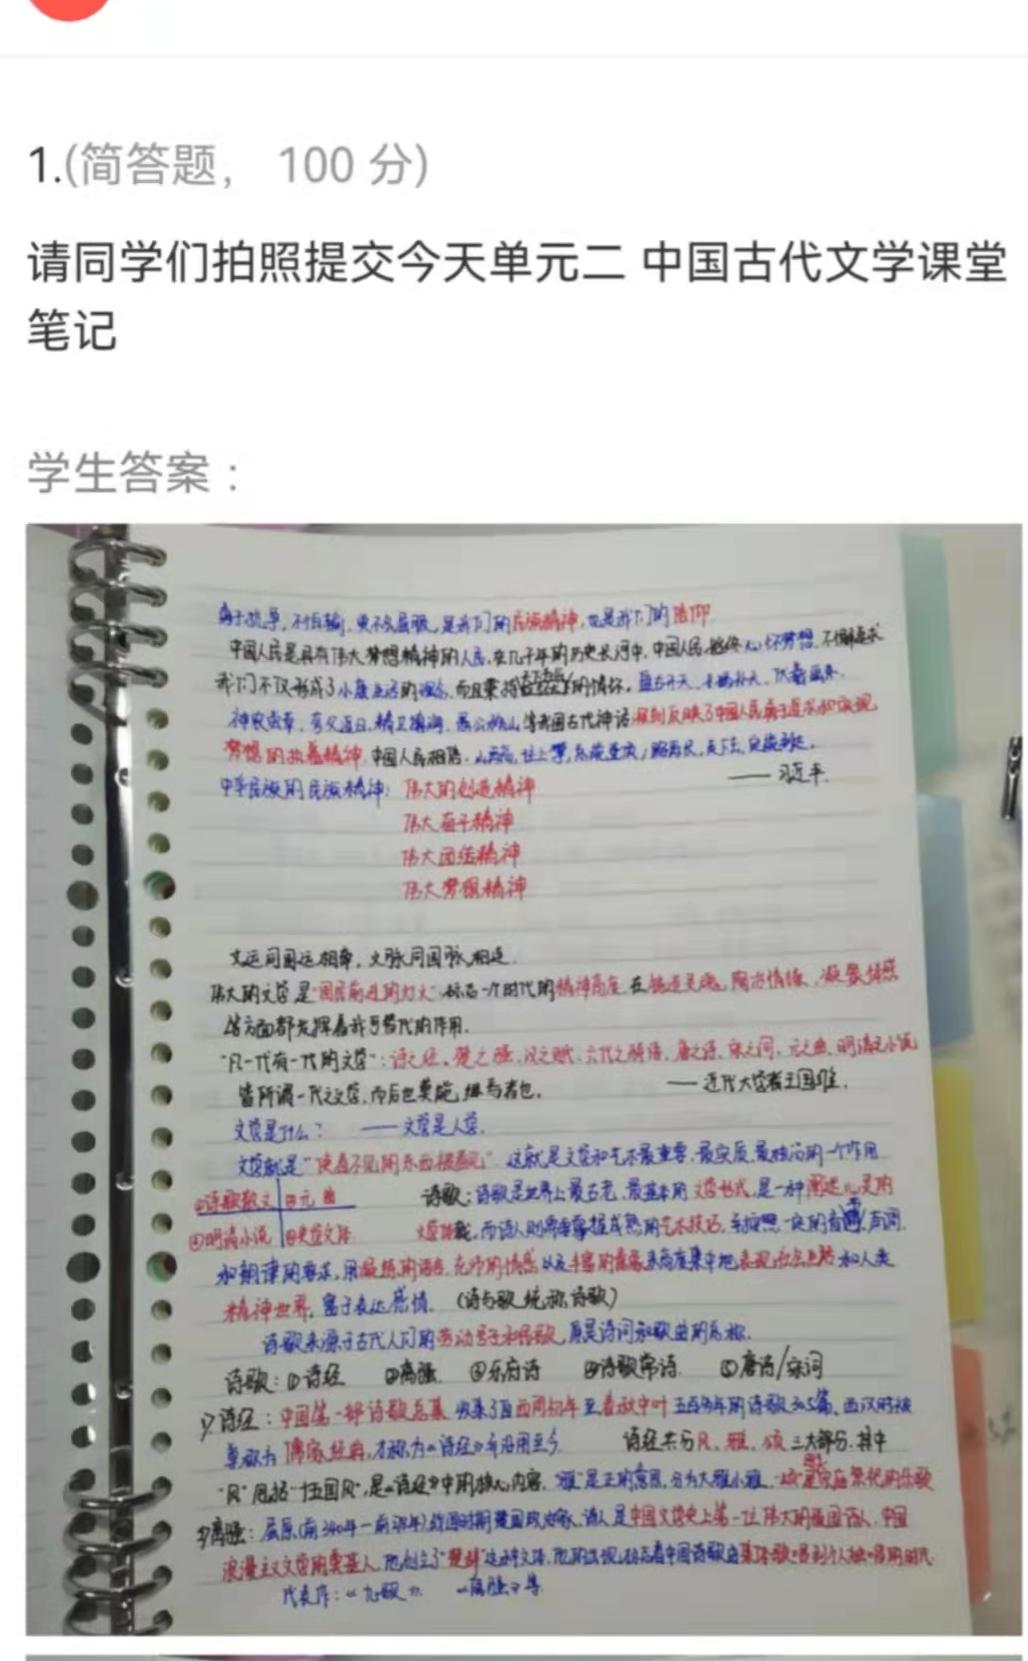 1.(简答题， 100 分)
请同学们拍照提交今天单元二 中国古代文学课堂
笔记
学生答案：
勇于抗争，不怕输，更不会屈服，是我们的民族精神，也是我们的信仰
中国人民是具有伟大梦想精神的人民，在几千年的历史长河中，中国人民始终心怀梦想、不懈追求
我们不仅形成了小康生活的理念，而且秉持的情怀，盘古开天、女娲补天、伏羲画卦、
神农尝草、夸父追日、精卫填海、愚公移山等我国古代神话深刻反映了中国人民勇于追求和实现
梦想的执着精神，中国人民相信，山再高，往上攀，总能登顶；路再长，走下去，定能到达。
—— 习近平
中华民族的民族精神：伟大的创造精神
伟大奋斗精神
伟大团结精神
伟大梦想精神
文运同国运相牵，文脉同国脉相连。
伟大的文学是"国民前进的灯火"，标志一个时代的精神高度，在铸造灵魂，陶冶情操，凝聚情感
等方面都发挥着我可替代的作用。
"凡一代有一代的文学"：诗之经、楚之骚、汉之赋、六代之骈语、唐之诗、宋之词、元之曲、明清之小说
皆所谓一代之文学，而后世莫能继焉者也。 —— 近代大学者王国维.
文学是什么？ —— 文学是人学.
文学就是"使看不见的东西被看见"，这就是文学和艺术最重要、最实质、最独特的一个作用
①诗歌散文 ②元曲 诗歌：诗歌是世界上最古老、最基本的文学形式，是一种阐述心灵的
③明清小说 文学体裁，而诗人则需要掌握成熟的艺术技巧，并按照一定的音节、韵词、
和韵律的要求，用凝练的语言，充沛的情感以及丰富的意象来高度集中地表现社会生活和人类
精神世界，富于表达感情。（诗与歌统称诗歌）
诗歌来源于古代人们的劳动号子和民歌，原是诗词和歌曲的总称.
诗歌：①诗经 ②离骚 ③乐府诗 ④诗歌常诗 ⑤唐诗/宋词
1)诗经：中国第一部诗歌总集 收录了自西周初年至春秋中叶五百多年的诗歌305篇，西汉时被
尊称为儒家经典，才称为《诗经》并沿用至今. 诗经共分风、雅、颂三大部分，其中
"风"包括十五国风，是《诗经》中的核心内容，"雅"是正的意思，分为大雅小雅，"颂"是宗庙祭祀的乐歌
2)离骚：屈原(前340年－前278年)战国时期楚国政治家、诗人是中国文学史上第一位伟大的爱国诗人，中国
浪漫主义文学的奠基人，他创立了"楚辞"这种文体，他的出现，标志着中国诗歌由集体歌唱到个人独唱的时代
代表作：《九歌》、《离骚》等